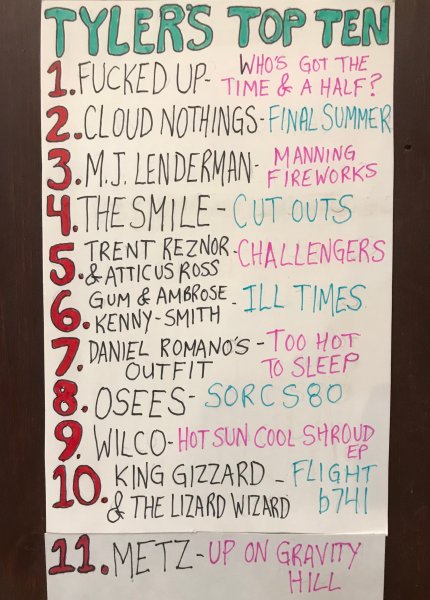 TYLER'S TOP TEN
1. FUCKED UP- WHO'S GOT THE
TIME & A HALF?
2. CLOUD NOTHINGS- FINAL SUMMER
3. M.J. LENDERMAN- MANNING
FIREWORKS
4. THE SMILE - CUT OUTS
5. TRENT REZNOR - CHALLENGERS
& ATTICUS ROSS
6. GUM & AMBROSE - ILL TIMES
KENNY-SMITH
7. DANIEL ROMANO'S - TOO HOT
OUTFIT TO SLEEP
8. OSEES- SORCS 80
9. WILCO- HOT SUN COOL SHROUD
EP
10. KING GIZZARD - FLIGHT
& THE LIZARD WIZARD b741
11. METZ - UP ON GRAVITY
HILL